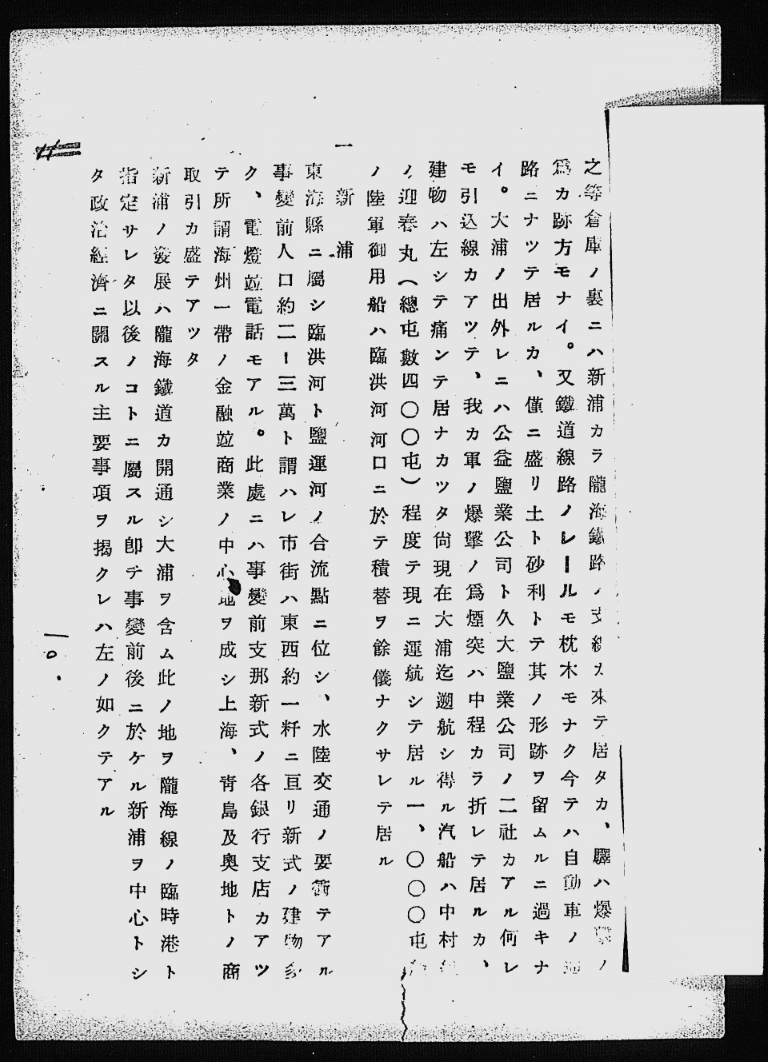 之等倉庫ノ裏ニハ新浦カラ隴海鐵路ノ支線カ來テ居タカ、驛ハ爆撃ノ
爲カ跡方モナイ。又鐵道線路ノレールモ枕木モナク今テハ自動車ノ通
路ニナツテ居ルカ、僅ニ盛リ土ト砂利トテ其ノ形跡ヲ留ムルニ過キナ
イ。大浦ノ出外レニハ公益鹽業公司ト久大鹽業公司ノ二社カアル何レ
モ引込線カアツテ、我カ軍ノ爆撃ノ爲煙突ハ中程カラ折レテ居ルカ、
建物ハ左シテ痛ンテ居ナカツタ尙現在大浦迄遡航シ得ル汽船ハ中村
ノ迎春丸(總屯數四〇〇屯)程度テ現ニ運航シテ居ル一、〇〇〇屯
ノ陸軍御用船ハ臨洪河河口ニ於テ積替ヲ餘儀ナクサレテ居ル
一 新浦
東海縣ニ屬シ臨洪河ト鹽運河ノ合流點ニ位シ、水陸交通ノ要衝テアル
事變前人口約二ー三萬ト謂ハレ市街ハ東西約一粁ニ亘リ新式ノ建物多
ク、電燈竝電話モアル。此處ニハ事變前支那新式ノ各銀行支店カアツ
テ所謂海州一帶ノ金融竝商業ノ中心地ヲ成シ上海、靑島及奧地トノ商
取引カ盛テアツタ
新浦ノ發展ハ隴海鐵道カ開通シ大浦ヲ含ム此ノ地ヲ隴海線ノ臨時港ト
指定サレタ以後ノコトニ屬スル卽チ事變前後ニ於ケル新浦ヲ中心トシ
タ政治經濟ニ關スル主要事項ヲ揭クレハ左ノ如クテアル
10.